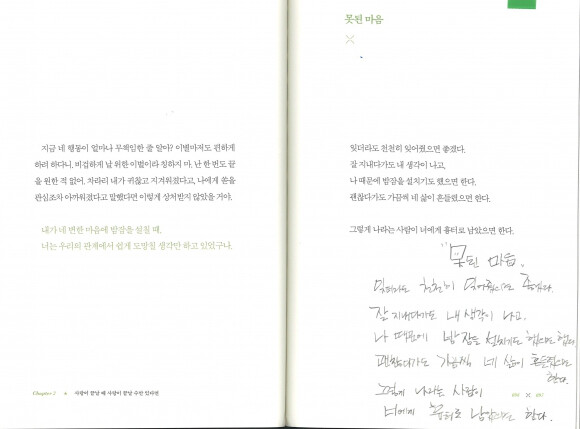 지금 네 행동이 얼마나 무책임한 줄 알아? 이별마저도 편하게
하려 하다니. 비겁하게 날 위한 이별이라 칭하지 마. 난 한 번도 끝
을 원한 적 없어. 차라리 내가 귀찮고 지겨워졌다고, 나에게 쏟을
관심조차 아까워졌다고 말했다면 이렇게 상처받지 않았을 거야.
내가 네 변한 마음에 밤잠을 설칠 때,
너는 우리의 관계에서 쉽게 도망칠 생각만 하고 있었구나.
Chapter 2
사랑이 끝난 뒤 사랑이 끝날 수만 있다면
못된 마음
잊더라도 천천히 잊어줬으면 좋겠다.
잘 지내다가도 내 생각이 나고,
나 때문에 밤잠을 설치기도 했으면 한다.
괜찮다가도 가끔씩 네 삶이 흔들렸으면 한다.
그렇게 나라는 사람이 너에게 흉터로 남았으면 한다.
못된 마음.
잊더라도 천천히 잊어줬으면 좋겠다.
잘 지내다가도 내 생각이 나고.
나 때문에 밤잠을 설치기도 했으면 한다.
괜찮다가도 가끔씩 네 삶이 흔들렸으면
한다.
그렇게 나라는 사람이
너에게 흉터로 남았으면 한다.